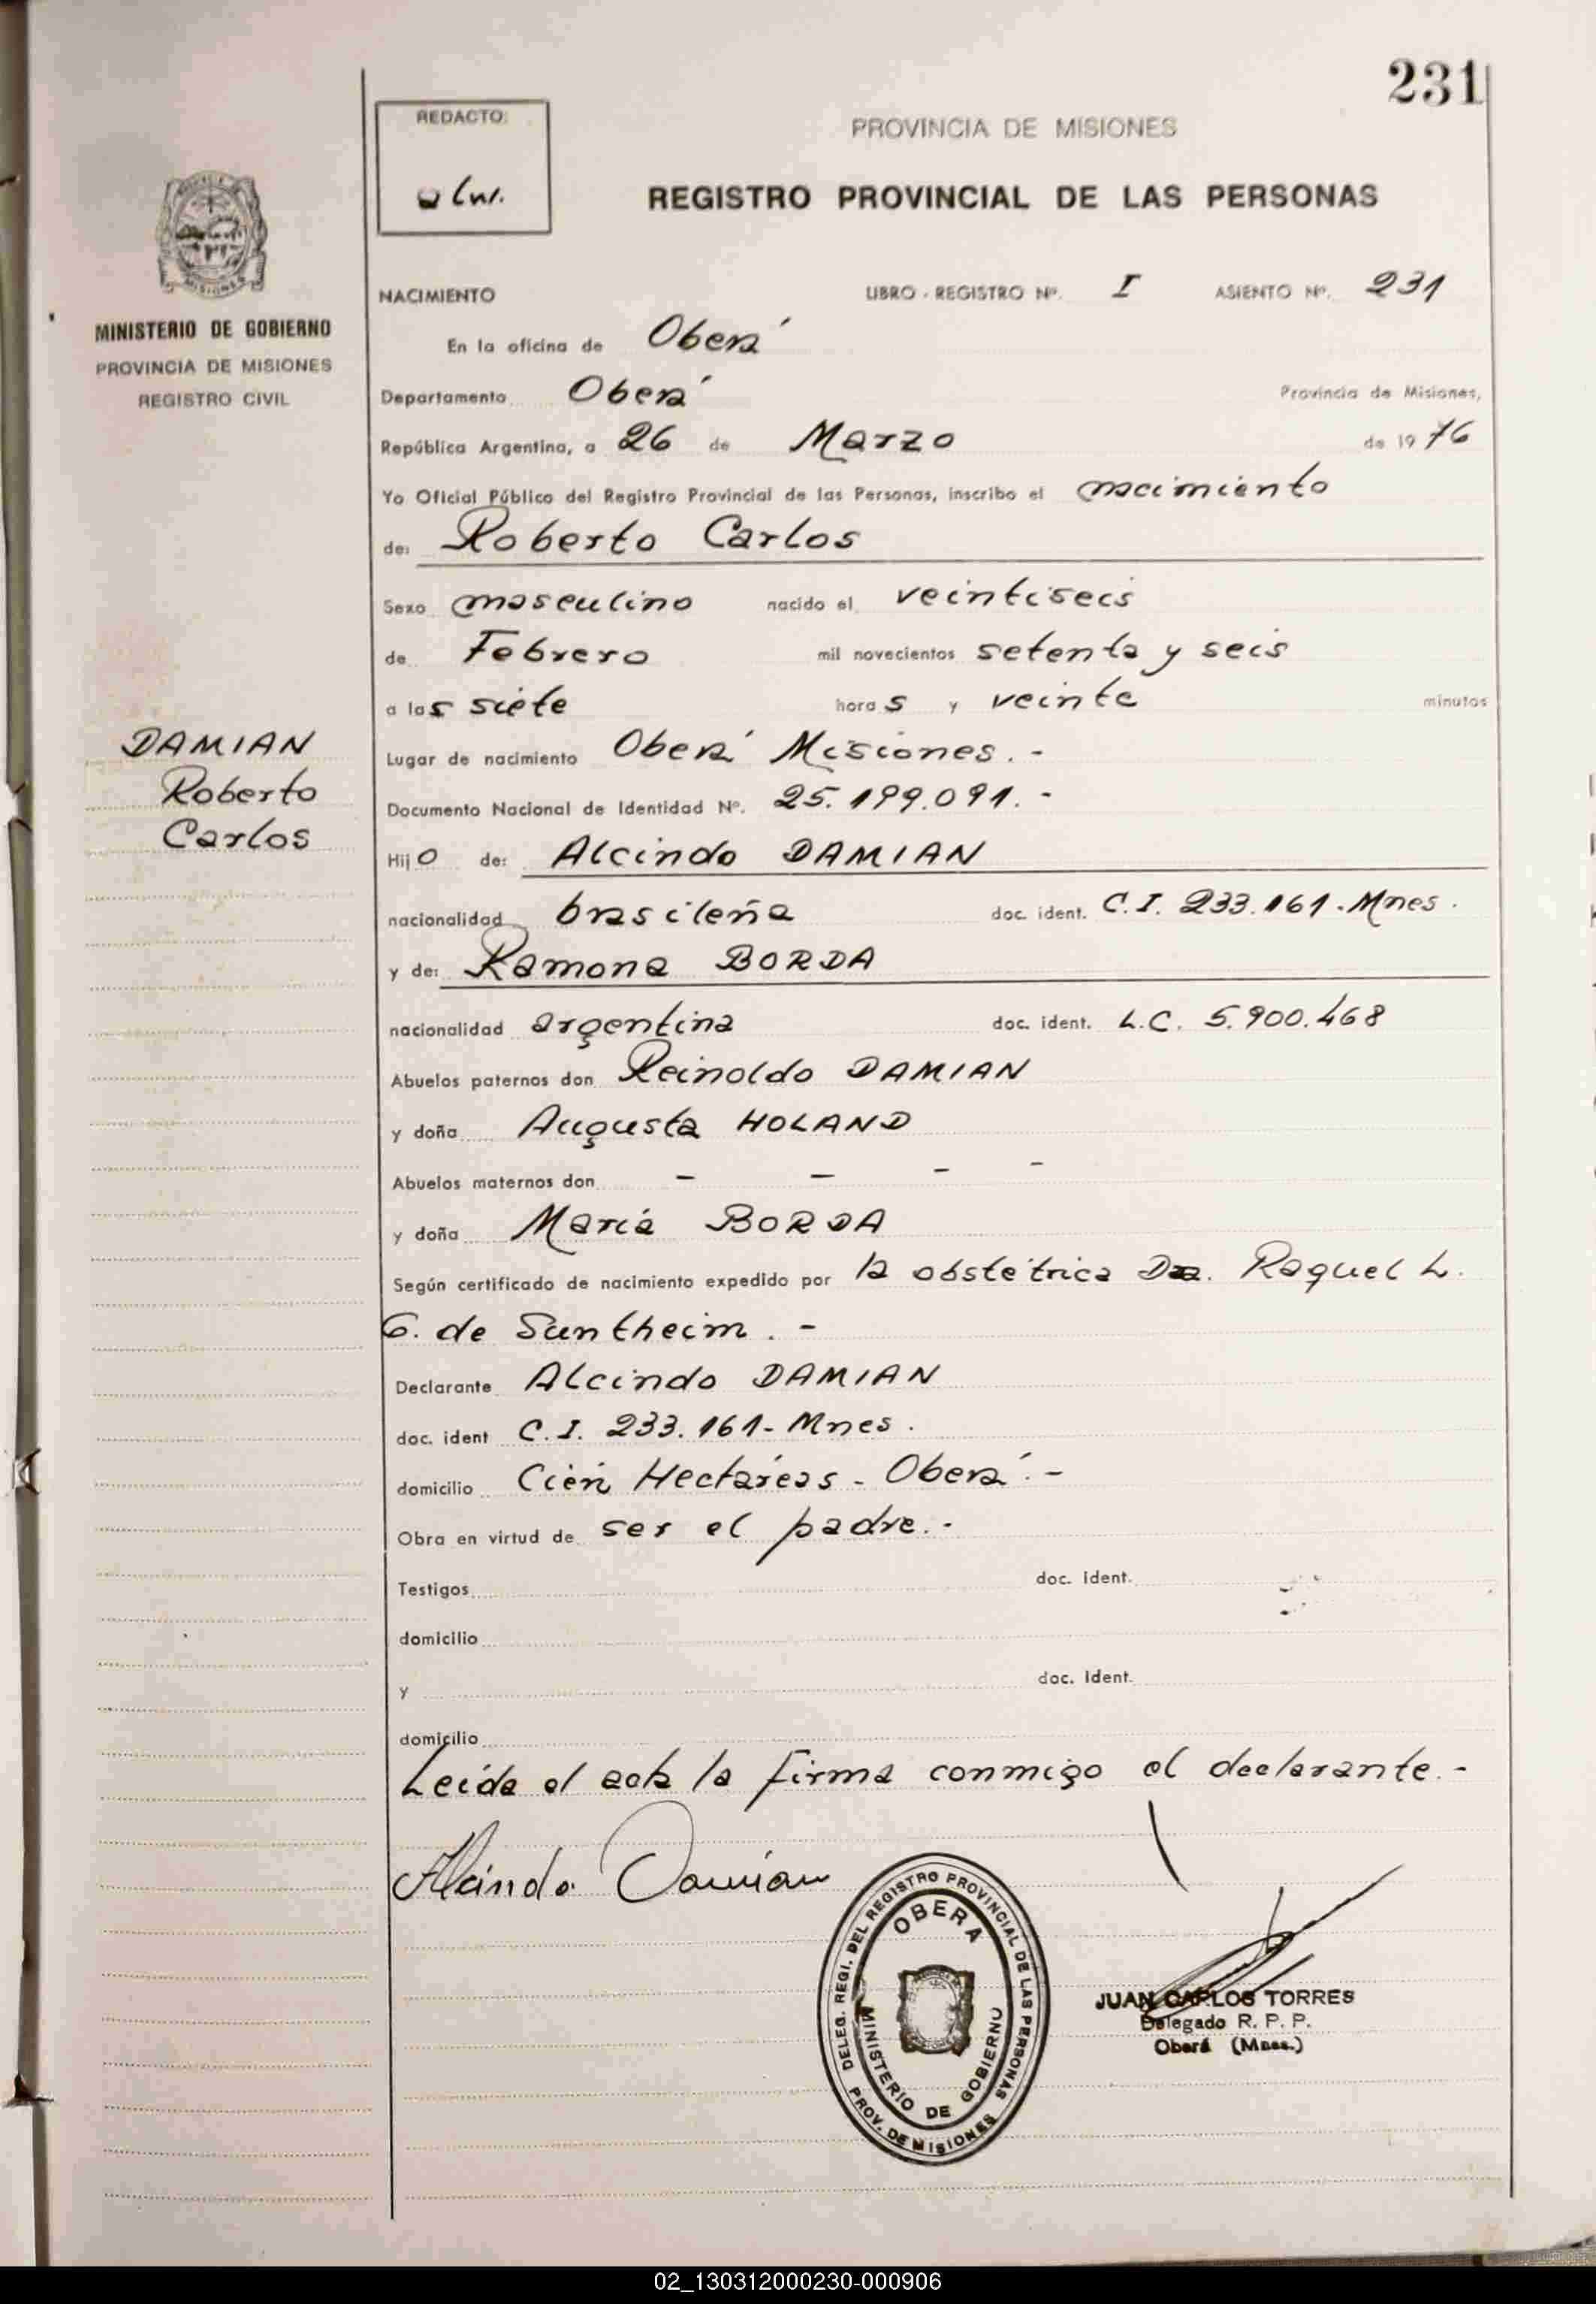 231
REDACTO:
PROVINCIA DE MISIONES
REGISTRO PROVINCIAL DE LAS PERSONAS
MISIONES
MINISTERIO DE GOBIERNO
PROVINCIA DE MISIONES
REGISTRO CIVIL
NACIMIENTO LIBRO - REGISTRO Nº. I ASIENTO Nº. 231
En la oficina de Oberá
Departamento Oberá Provincia de Misiones,
República Argentina, a 26 de Marzo de 1976
Yo Oficial Público del Registro Provincial de las Personas, inscribo el nacimiento
de: Roberto Carlos
Sexo masculino nacido el veintiseis
de Febrero mil novecientos setenta y seis
a las siete horas y veinte minutos
DAMIAN
Roberto
Carlos
Lugar de nacimiento Oberá Misiones. -
Documento Nacional de Identidad Nº. 25.199.091. -
Hijo de: Alcindo DAMIAN
nacionalidad brasileña doc. ident. C.I. 233.161-Mnes.
y de: Ramona BORDA
nacionalidad argentina doc. ident. L.C. 5.900.468
Abuelos paternos don Reinoldo DAMIAN
y doña Augusta HOLAND
Abuelos maternos don - - - -
y doña María BORDA
Según certificado de nacimiento expedido por la obstétrica Dra. Raquel L.
G. de Suntheim. -
Declarante Alcindo DAMIAN
doc. ident C.I. 233.161- Mnes.
domicilio Cien Hectáreas - Oberá. -
Obra en virtud de ser el padre. -
Testigos doc. ident.
domicilio
y doc. ident.
domicilio
Leída el acta la firma conmigo el declarante. -
Alcindo Damian
DELEG. REGI. DEL REGISTRO PROVINCIAL DE LAS PERSONAS
OBERA
MINISTERIO DE GOBIERNO
PROV. DE MISIONES
JUAN CARLOS TORRES
Delegado R. P. P.
Oberá (Mnes.)
02_130312000230-000906